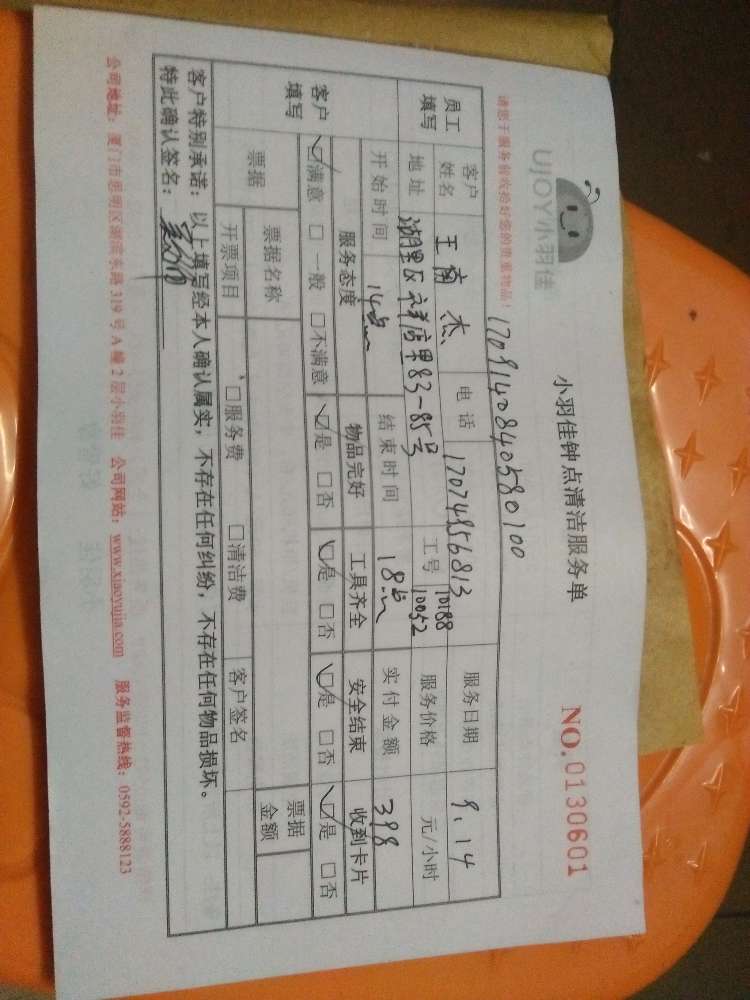 UJOY小羽佳
小羽佳钟点清洁服务单
NO.0130601
请您于服务前收拾好您的贵重物品!
17091408405580100
员工填写 客户姓名 王 杰 电话 17074856813 服务日期 9.14
地址 湖里区 店里83-85号 工号 10188 10052 服务价格 元/小时
开始时间 14点 结束时间 18点 实付金额 398
客户填写 服务态度 物品完好 工具齐全 安全结束 收到卡片
☑满意 □一般 □不满意 ☑是 □否 ☑是 □否 ☑是 □否 ☑是 □否
票据 票据名称 票据金额
开票项目 □服务费 □清洁费 客户签名
客户特别承诺:以上填写经本人确认属实,不存在任何纠纷,不存在任何物品损坏。
特此确认签名:
公司地址:厦门市思明区湖滨东路319号A幢2层小羽佳 公司网站:www.xiaoyujia.com 服务监督热线:0592-5888123